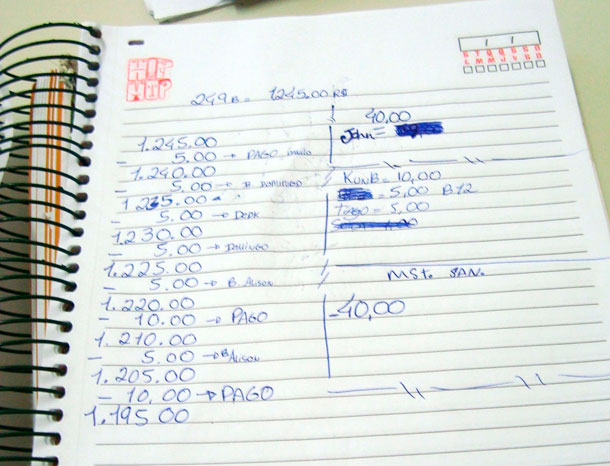 249B = 1245.00 R$
1.245.00
- 5.00 → PAGO
1.240.00
- 5.00 → B. DOMINGO
1235.00
- 5.00 → DEDK
1230.00
- 5.00 → DOMINGO
1.225.00
- 5.00 → B. ALISON
1.220.00
- 10.00 → PAGO
1.210.00
- 5.00 → B ALISON
1.205.00
- 10,00 → PAGO
1.195 00
40,00
John =
KONB = 10,00
= 5,00 B12
TIAGO = 5,00
MST. JAN.
-40,00